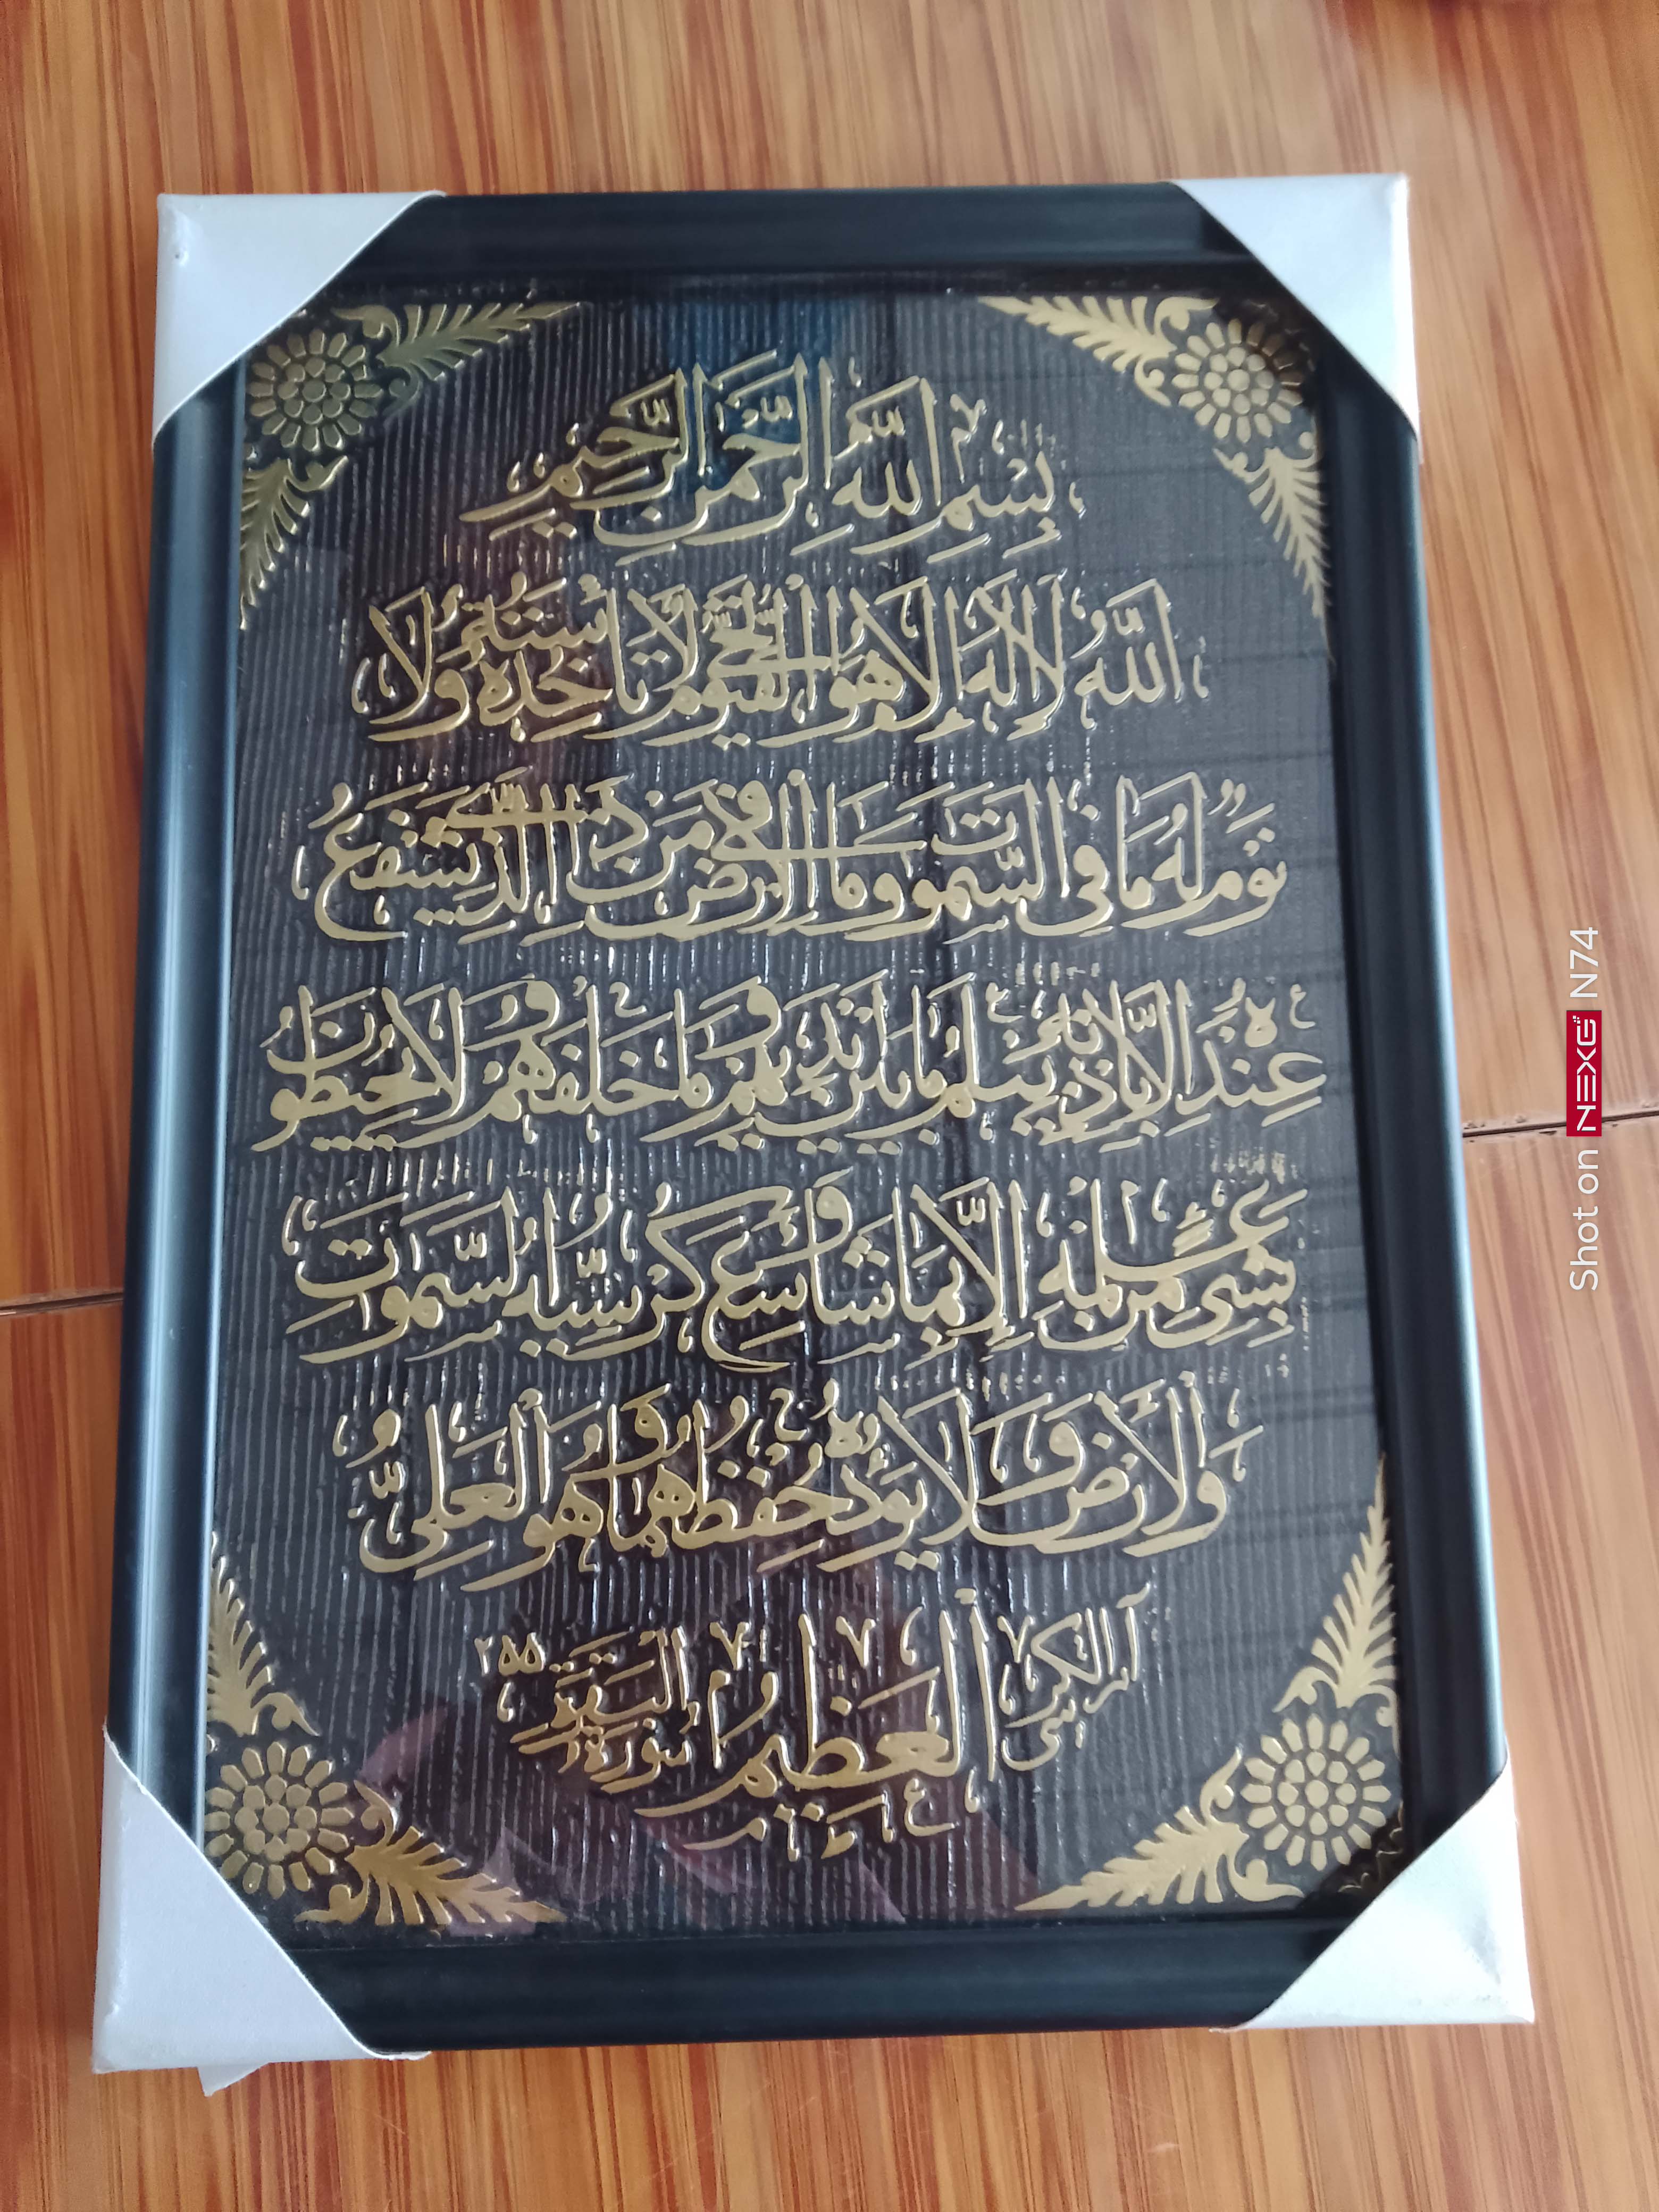 بِسْمِ اللهِ الرَّحْمٰنِ الرَّحِيْمِ
اَللهُ لَا اِلٰهَ اِلَّا هُوَ الْحَىُّ الْقَيُّوْمُ لَا تَأْخُذُهُ سِنَةٌ وَلَا
نَوْمٌ لَهُ مَا فِى السَّمٰوٰتِ وَمَا فِى الْاَرْضِ مَنْ ذَا الَّذِىْ يَشْفَعُ
عِنْدَهُ اِلَّا بِاِذْنِهِ يَعْلَمُ مَا بَيْنَ اَيْدِيْهِمْ وَمَا خَلْفَهُمْ وَلَا يُحِيْطُوْنَ
بِشَىْءٍ مِنْ عِلْمِهِ اِلَّا بِمَا شَاءَ وَسِعَ كُرْسِيُّهُ السَّمٰوٰتِ
وَالْاَرْضَ وَلَا يَؤُدُهُ حِفْظُهُمَا وَهُوَ الْعَلِىُّ
الْعَظِيْمُ سُوْرَةُ الْبَقَرَةِ ٢٥٥
Shot on NEXG N74